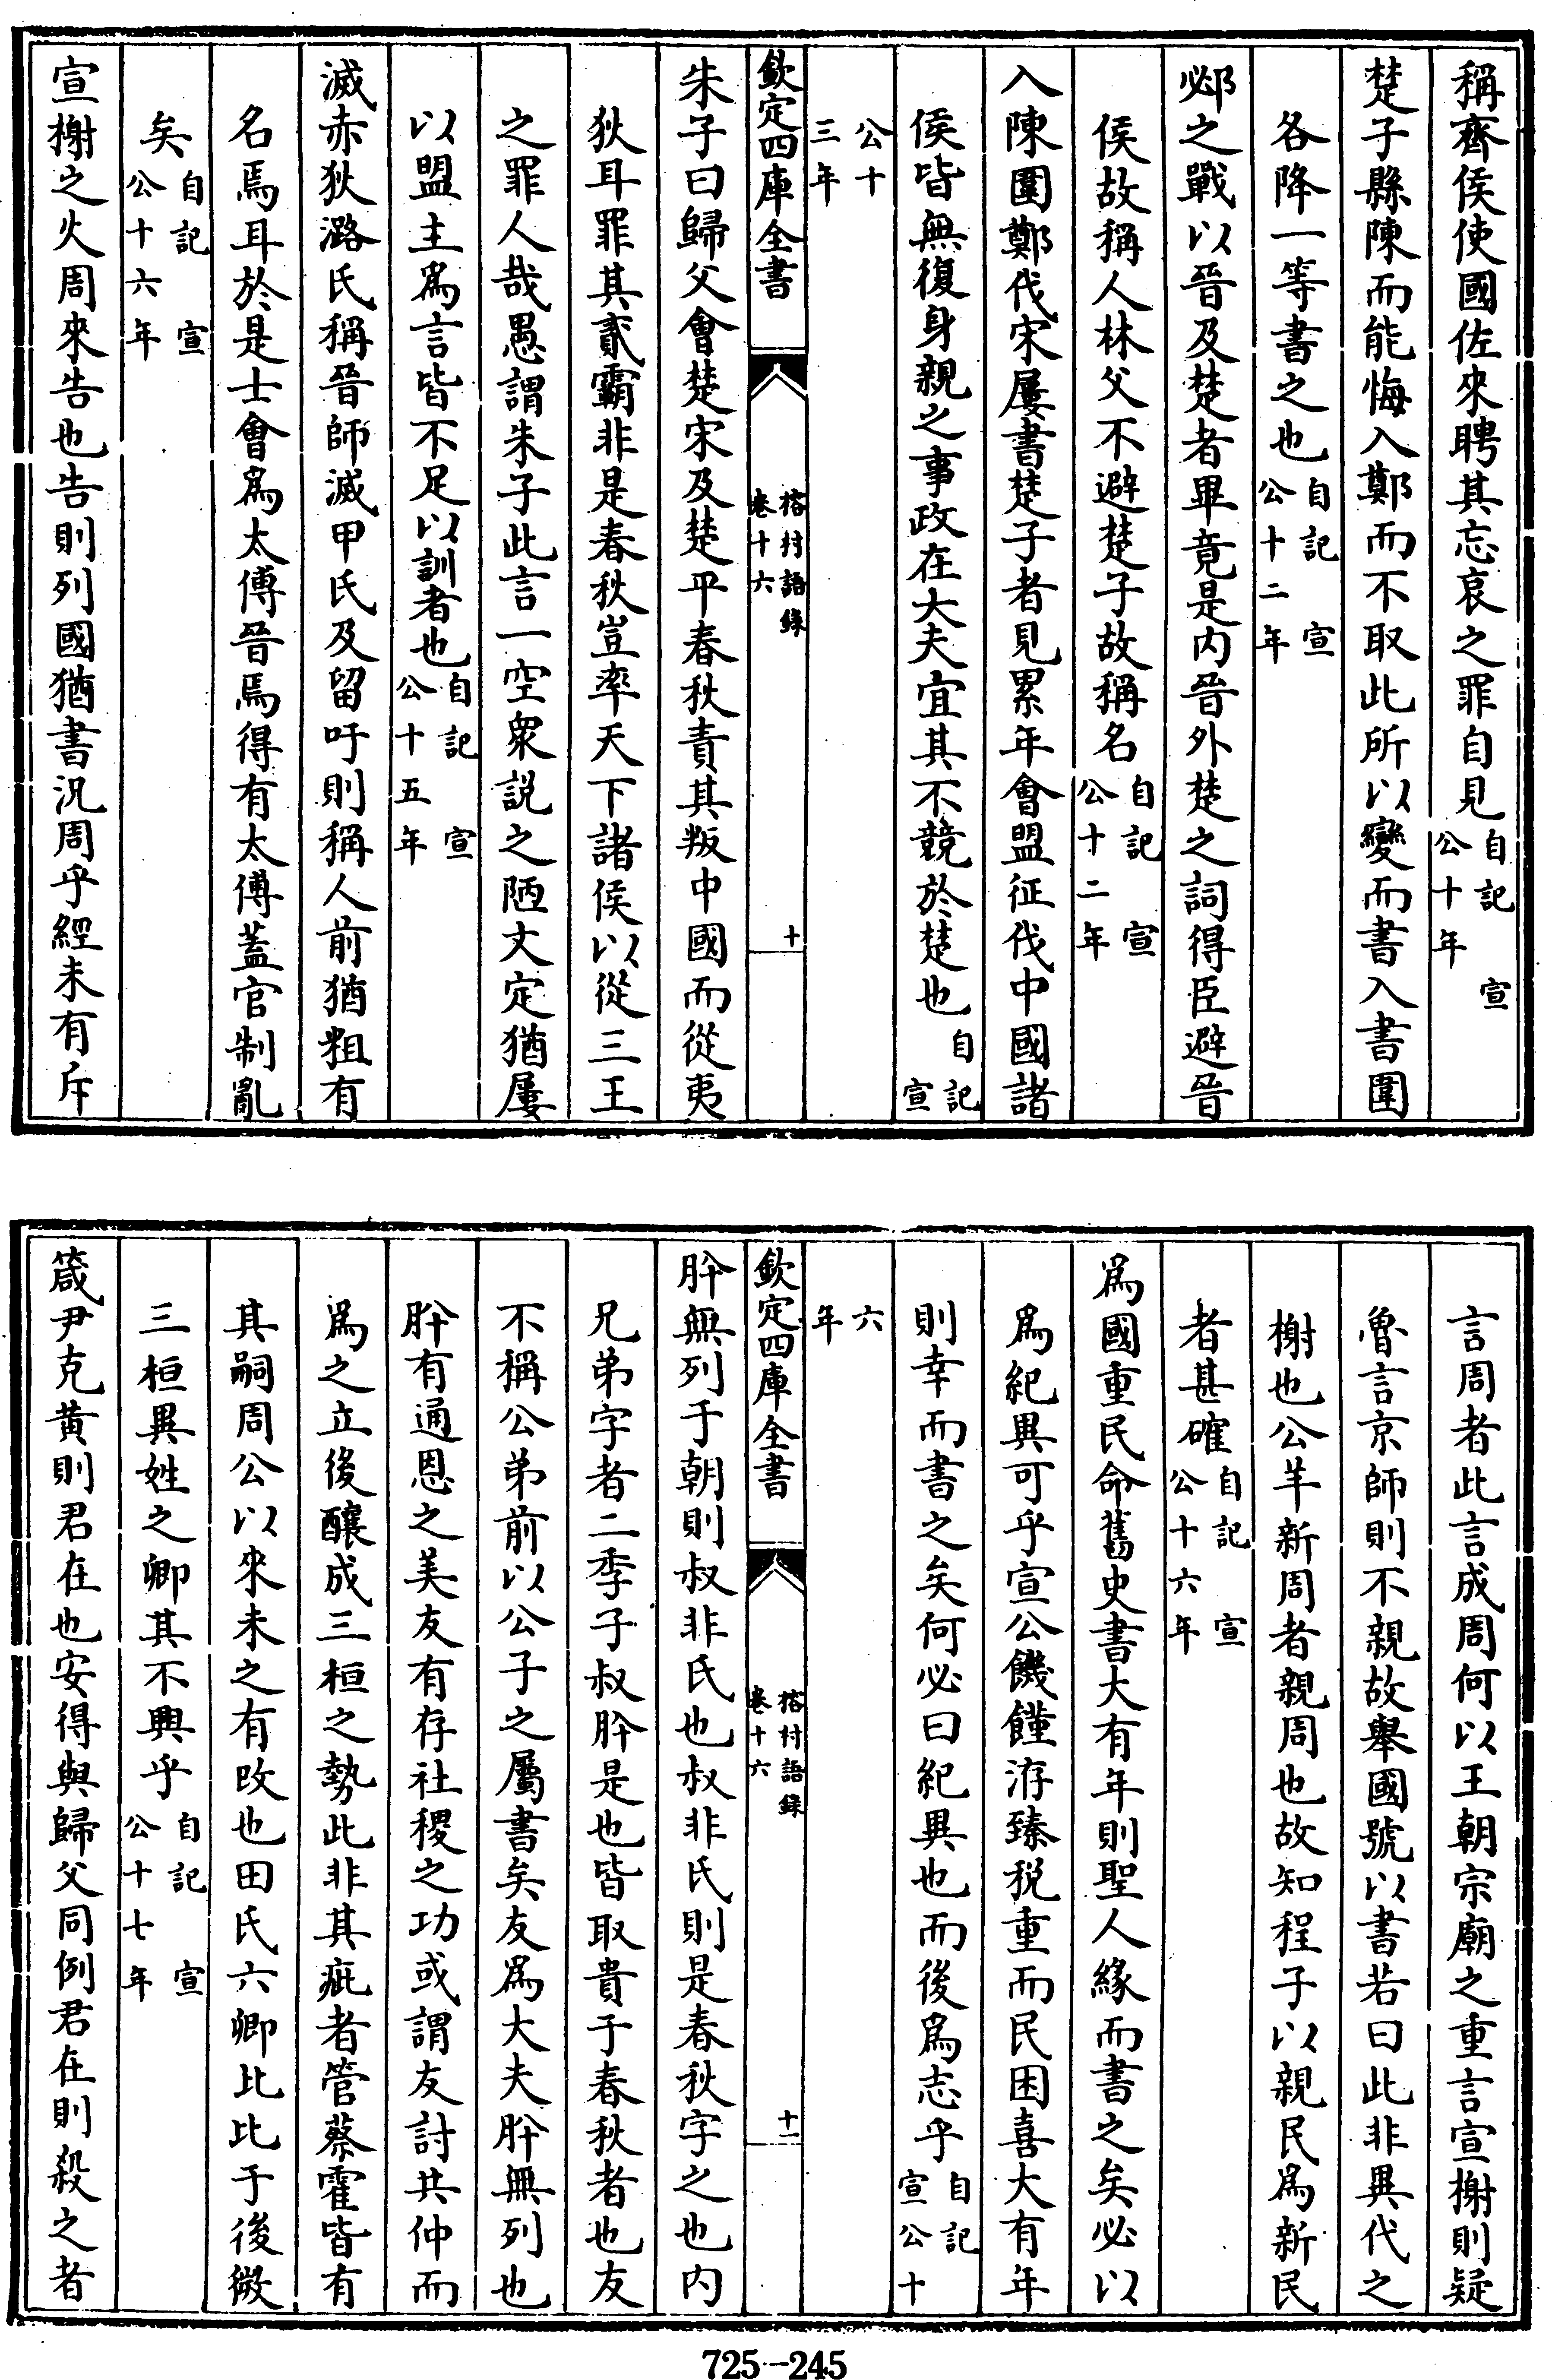 稱齊侯使國佐來聘其忘哀之罪自見自記 宣公十年
楚子縣陳而能悔入鄭而不取此所以變而書入書圍
各降一等書之也自記 宣公十二年
邲之戰以晉及楚者畢竟是内晉外楚之詞得臣避晉
侯故稱人林父不避楚子故稱名自記 宣公十二年
入陳圍鄭伐宋屢書楚子者見累年會盟征伐中國諸
侯皆無復身親之事政在大夫宜其不競於楚也自記宣
公十三年
欽定四庫全書 榕村語錄卷十六 十
朱子曰歸父會楚宋及楚平春秋責其叛中國而從夷
狄耳罪其貳霸非是春秋豈率天下諸侯以從三王
之罪人哉愚謂朱子此言一空衆説之陋文定猶屢
以盟主爲言皆不足以訓者也自記 宣公十五年
滅赤狄潞氏稱晉師滅甲氏及留吁則稱人前猶粗有
名焉耳於是士會爲太傅晉焉得有太傅蓋官制亂
矣自記 宣公十六年
宣榭之火周來告也告則列國猶書況周乎經未有斥
言周者此言成周何以王朝宗廟之重言宣榭則疑
魯言京師則不親故舉國號以書若曰此非異代之
榭也公羊新周者親周也故知程子以親民爲新民
者甚確自記 宣公十六年
爲國重民命舊史書大有年則聖人緣而書之矣必以
爲紀異可乎宣公饑饉洊臻税重而民困喜大有年
則幸而書之矣何必曰紀異也而後爲志乎自記宣公十
六年
欽定四庫全書 榕村語錄卷十六 十一
肸無列于朝則叔非氏也叔非氏則是春秋字之也内
兄弟字者二季子叔肸是也皆取貴于春秋者也友
不稱公弟前以公子之屬書矣友爲大夫肸無列也
肸有通恩之美友有存社稷之功或謂友討共仲而
爲之立後釀成三桓之勢此非其疵者管蔡霍皆有
其嗣周公以來未之有改也田氏六卿比比于後微
三桓異姓之卿其不興乎自記 宣公十七年
箴尹克黄則君在也安得與歸父同例君在則殺之者
725-245